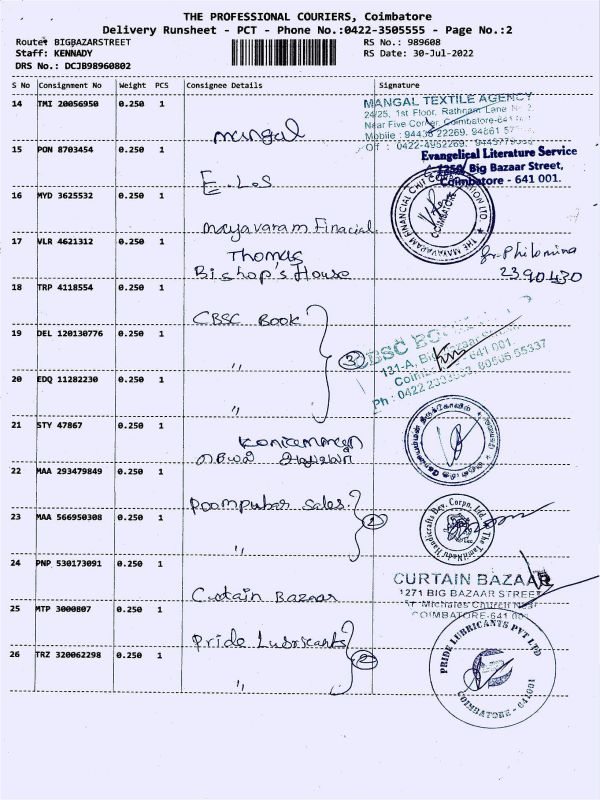 THE PROFESSIONAL COURIERS, Coimbatore
Delivery Runsheet - PCT - Phone No.:0422-3505555 - Page No.:2
Route: BIGBAZARSTREET
RS No.: 989608
Staff: KENNADY
RS Date: 30-Jul-2022
DRS No.: DCJB98960802
S No Consignment No Weight PCS Consignee Details Signature
14 TMI 20056950 0.250 1 mangal
MANGAL TEXTILE AGENCY
24/25, 1st Floor, Rathnam Lane No 2,
Near Five Corner, Coimbatore-641
Mobile : 94438 22269, 94861
Off : 0422-4952269,
15 PON 8703454 0.250 1 E.L.S
Evangelical Literature Service
1250, Big Bazaar Street,
Coimbatore - 641 001.
16 MYD 3625532 0.250 1 Mayavaram Finacial
THE MAYAVARAM FINANCIAL CHIT CORPORATION LTD.
COIMBATORE
17 VLR 4621312 0.250 1 Thomas
Bishop's House
Sr. Philomina
2390430
18 TRP 4118554 0.250 1 CBSC Book
19 DEL 120130776 0.250 1 "
3
CBSC
131-A, Big Bazaar Street
641 001.
Ph : 0422
55337
20 EDQ 11282230 0.250 1 "
21 STY 47867 0.250 1
22 MAA 293479849 0.250 1 Poompuhar Sales
23 MAA 566950308 0.250 1 "
The TamilNadu Handicrafts Dev. Corpn. Ltd.
24 PNP 530173091 0.250 1 Curtain Bazaar
CURTAIN BAZAAR
1271 BIG BAZAAR STREET
ST Michales Church Near
COIMBATORE-641 001
25 MTP 3000807 0.250 1 Pride Lubricants
26 TRZ 320062298 0.250 1 "
2
PRIDE LUBRICANTS PVT LTD
COIMBATORE - 641001